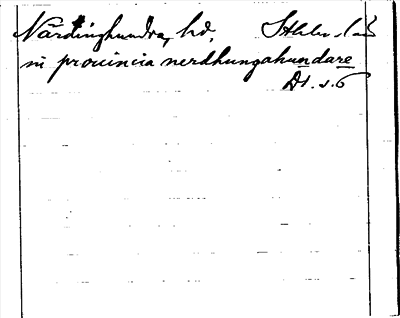 Närdinghundra, hd, Sthlms län
in prouincia nerdhungahundare
DS. s. 6